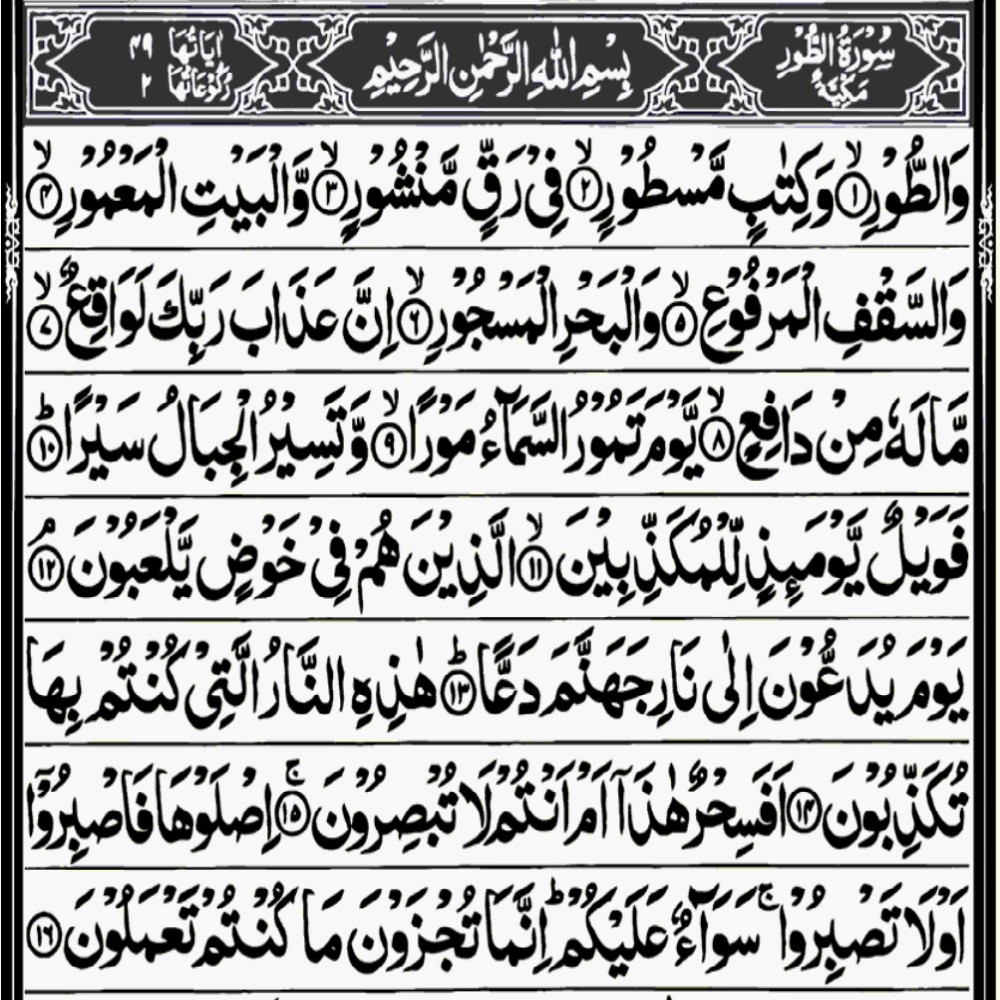 سُوْرَةُ الطُّوْرِ مَكِّيَّةٌ بِسْمِ اللّٰهِ الرَّحْمٰنِ الرَّحِيْمِ اٰيَاتُهَا ۴۹ رُكُوْعَاتُهَا ۲
وَالطُّوْرِ ۙ﴿۱﴾ وَكِتٰبٍ مَّسْطُوْرٍ ۙ﴿۲﴾ فِیْ رَقٍّ مَّنْشُوْرٍ ۙ﴿۳﴾ وَّالْبَيْتِ الْمَعْمُوْرِ ۙ﴿۴﴾
وَالسَّقْفِ الْمَرْفُوْعِ ۙ﴿۵﴾ وَالْبَحْرِ الْمَسْجُوْرِ ۙ﴿۶﴾ اِنَّ عَذَابَ رَبِّكَ لَوَاقِعٌ ۙ﴿۷﴾
مَّا لَهٗ مِنْ دَافِعٍ ۙ﴿۸﴾ يَّوْمَ تَمُوْرُ السَّمَآءُ مَوْرًا ۙ﴿۹﴾ وَّتَسِيْرُ الْجِبَالُ سَيْرًا ؕ﴿۱۰﴾
فَوَيْلٌ يَّوْمَئِذٍ لِّلْمُكَذِّبِيْنَ ۙ﴿۱۱﴾ الَّذِيْنَ هُمْ فِیْ خَوْضٍ يَّلْعَبُوْنَ ۘ﴿۱۲﴾
يَوْمَ يُدَعُّوْنَ اِلٰی نَارِ جَهَنَّمَ دَعًّا ؕ﴿۱۳﴾ هٰذِهِ النَّارُ الَّتِیْ كُنْتُمْ بِهَا
تُكَذِّبُوْنَ ﴿۱۴﴾ اَفَسِحْرٌ هٰذَاۤ اَمْ اَنْتُمْ لَا تُبْصِرُوْنَ ۚ﴿۱۵﴾ اِصْلَوْهَا فَاصْبِرُوْۤا
اَوْ لَا تَصْبِرُوْا ۚ سَوَآءٌ عَلَيْكُمْ ؕ اِنَّمَا تُجْزَوْنَ مَا كُنْتُمْ تَعْمَلُوْنَ ﴿۱۶﴾